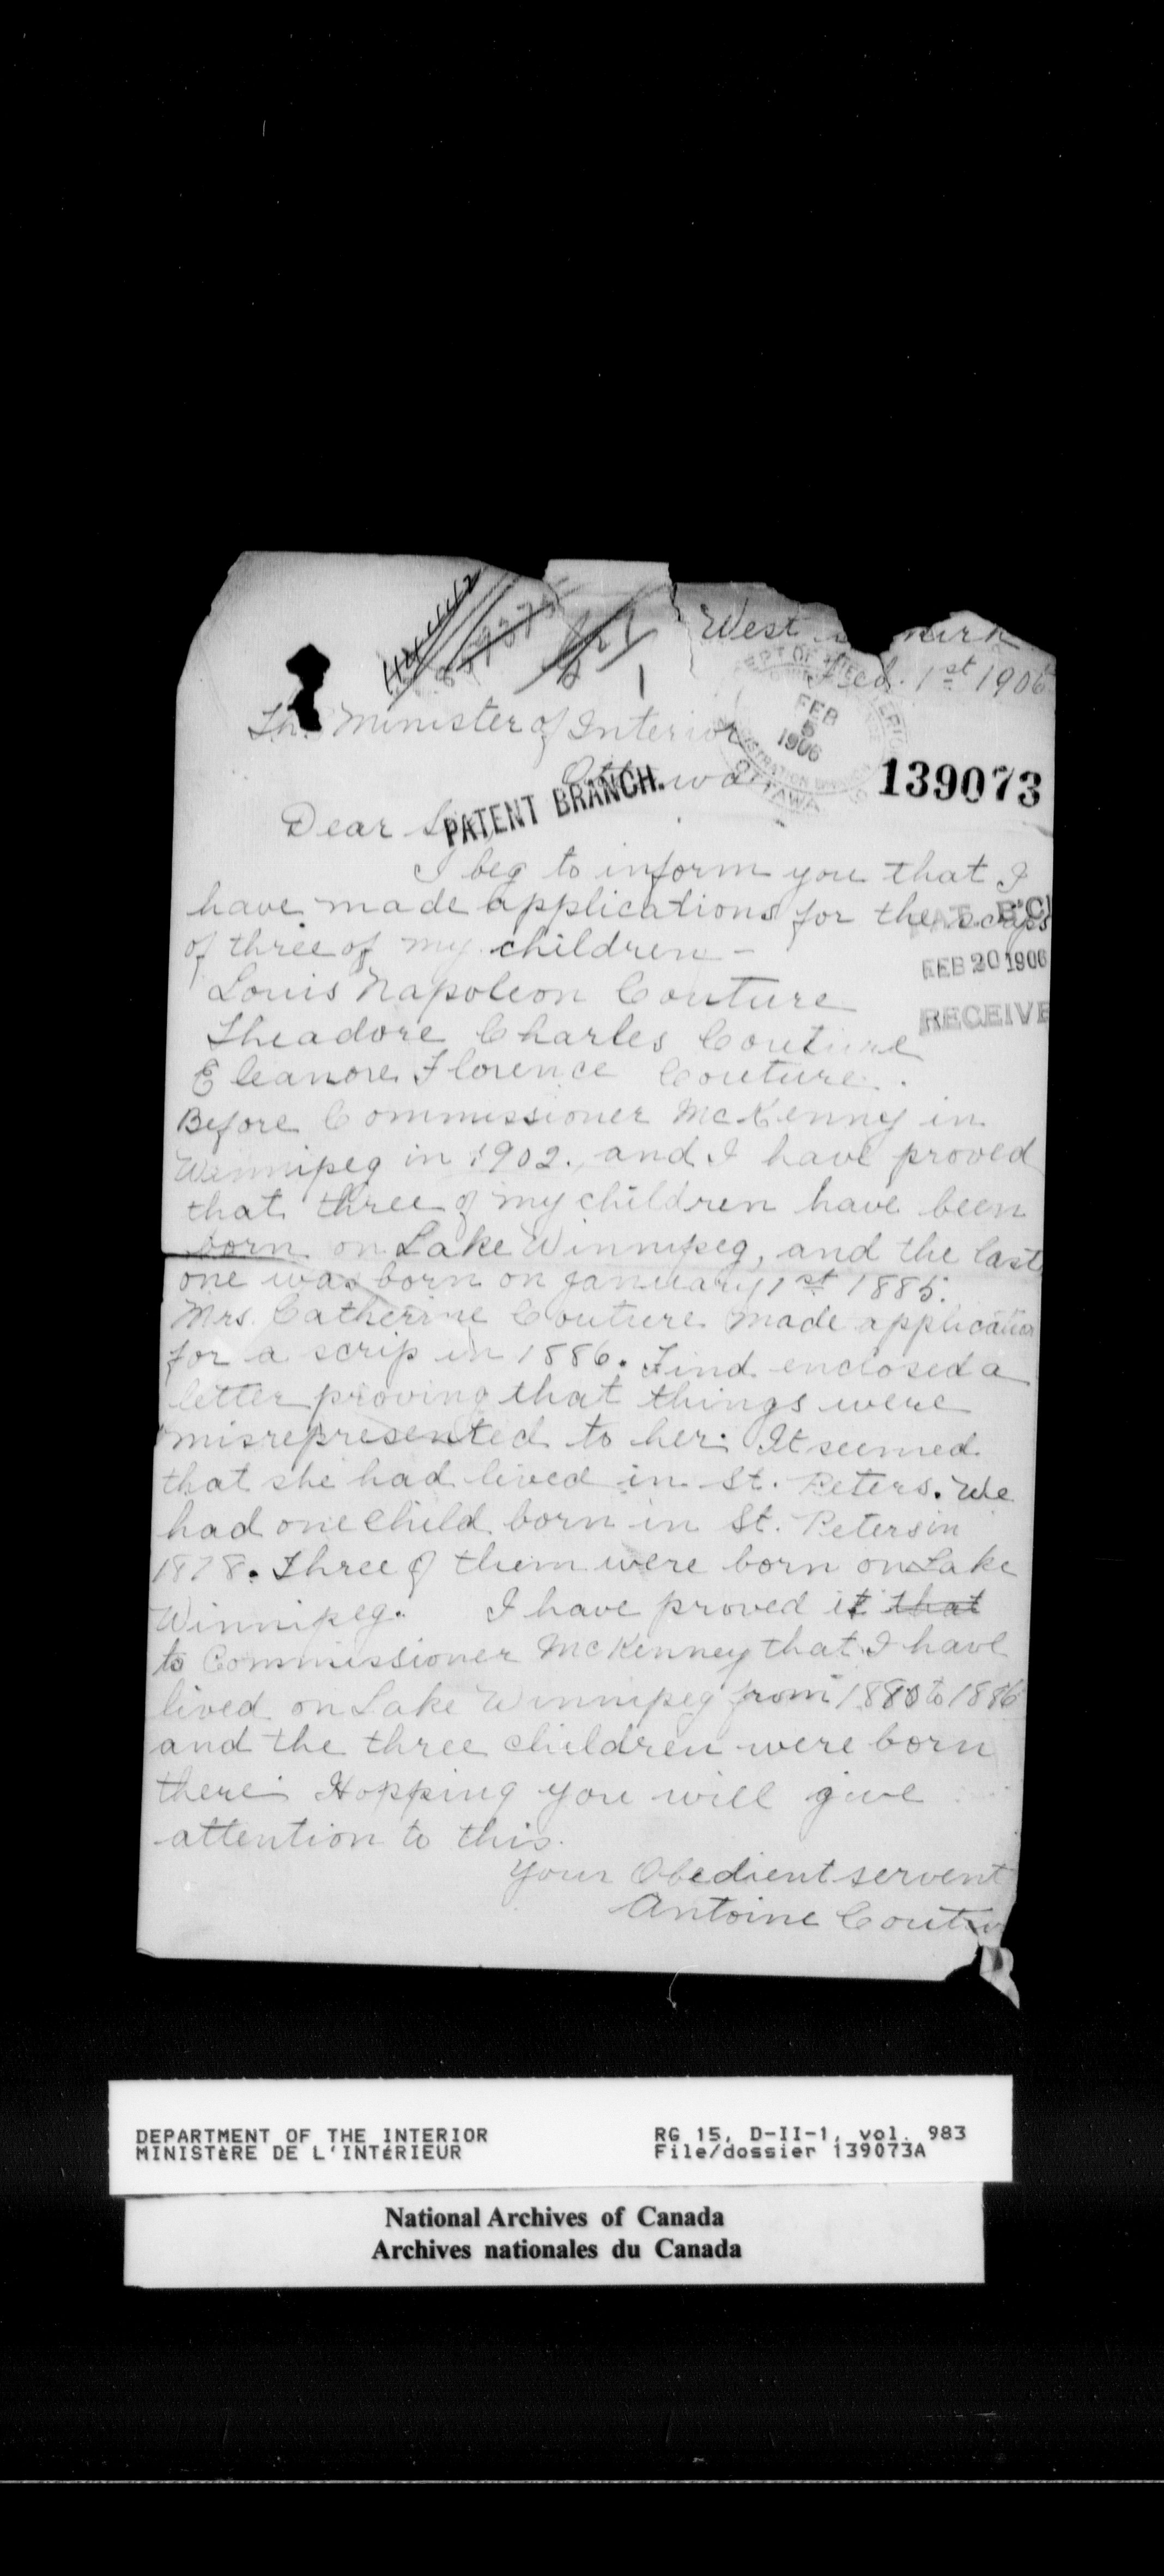 West
Feb. 1st 1906
The Minister of Interior
FEB
5
1906
OTTAWA
139073
Ottawa
PATENT BRANCH.
Dear
I beg to inform you that I
have made applications for the scrips
of three of my children -
FEB 20 1906
Louis Napoleon Couture
RECEIVE
Theadore Charles Couture
Eleanore Florence Couture.
Before Commissioner McKenny in
Winnipeg in 1902., and I have proved
that three of my children have been
born on Lake Winnipeg, and the last
one was born on January 1st 1885.
Mrs. Catherine Couture made application
for a scrip in 1886. Find enclosed a
letter proving that things were
misrepresented to her. It seemed
that she had lived in St. Peters. We
had one child born in St. Peters in
1878. Three of them were born on Lake
Winnipeg. I have proved it that
to Commissioner McKenney that I have
lived on Lake Winnipeg from 1880 to 1886
and the three children were born
there. Hopping you will give
attention to this.
Your Obedient servent
Antoine Couture
DEPARTMENT OF THE INTERIOR
MINISTÈRE DE L'INTÉRIEUR
RG 15, D-II-1, vol. 983
File/dossier 139073A
National Archives of Canada
Archives nationales du Canada